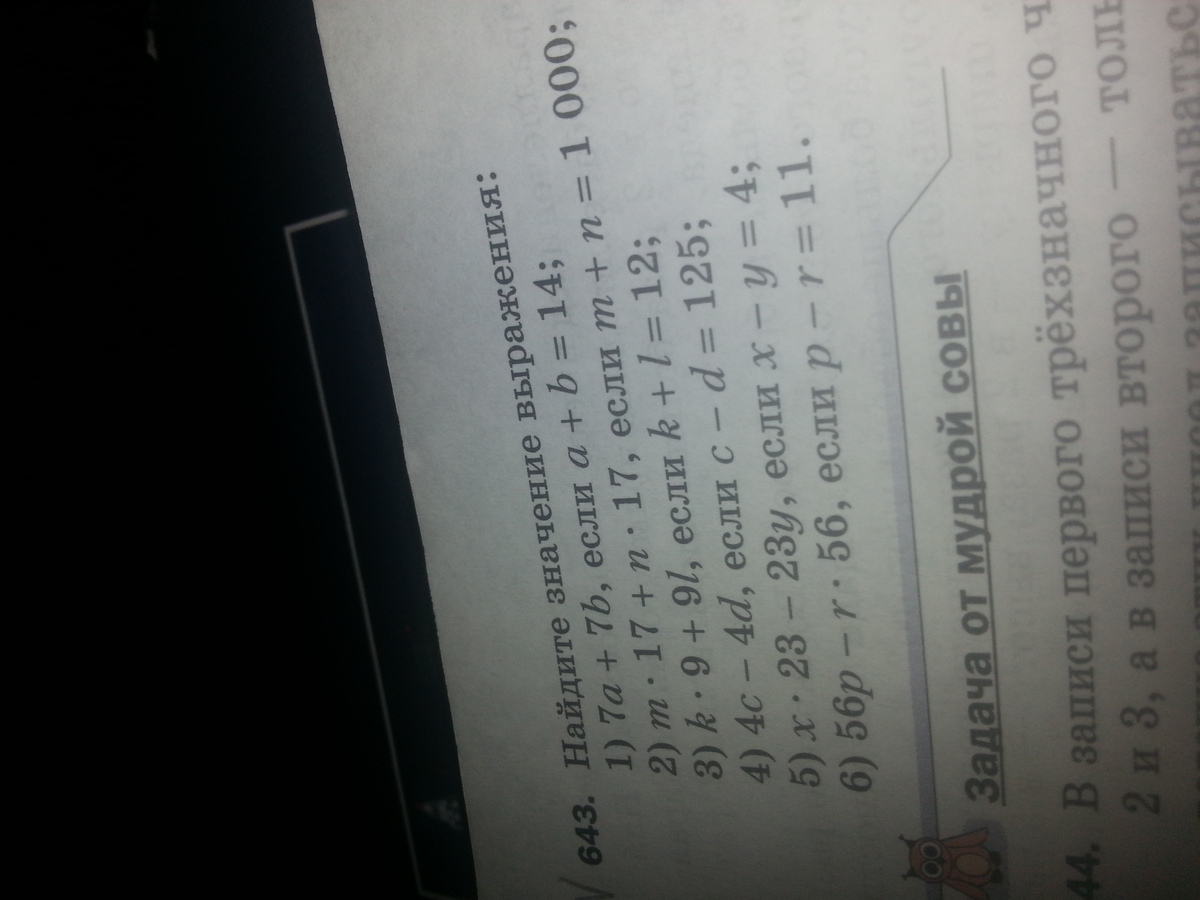 643. Найдите значение выражения:
1) 7a + 7b, если a + b = 14;
2) m · 17 + n · 17, если m + n = 1 000;
3) k · 9 + 9l, если k + l = 12;
4) 4c − 4d, если c − d = 125;
5) x · 23 − 23y, если x − y = 4;
6) 56p − r · 56, если p − r = 11.
Задача от мудрой совы
44. В записи первого трёхзначного ч
2 и 3, а в записи второго — толь
записыватьс